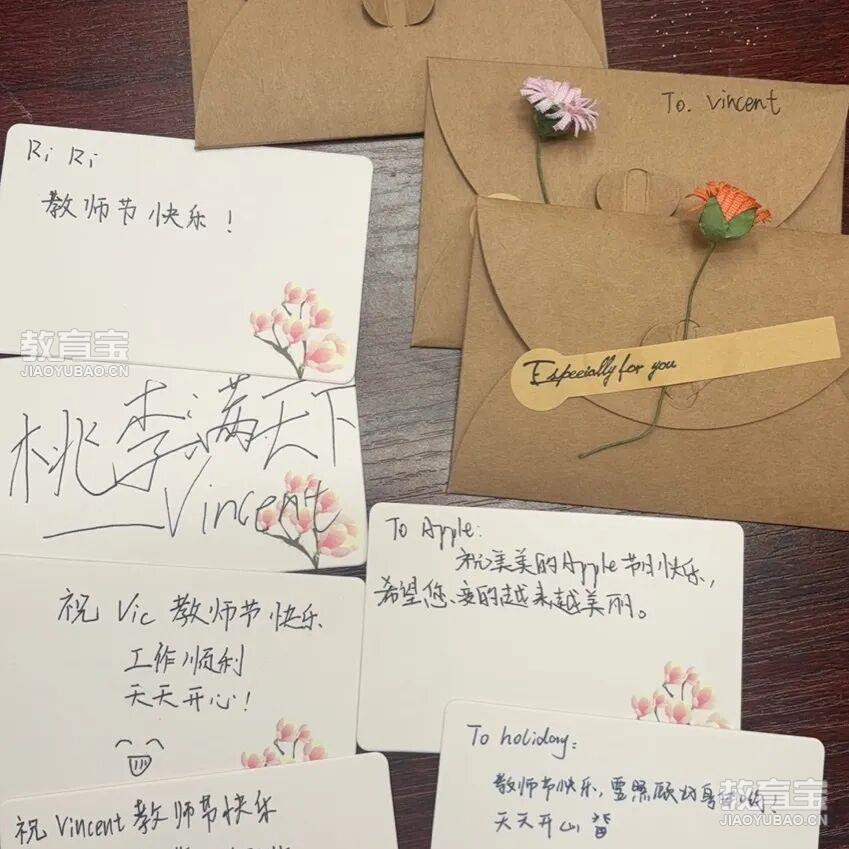 To. Vincent
Ri Ri
教师节快乐！
Especially for you
教育宝
JIAOYUBAO.CN
桃李满天下
——Vincent
To Apple:
祝美美的Apple节日快乐，
希望您变的越来越美丽。
祝 Vic 教师节快乐
工作顺利
天天开心！
To holiday:
教师节快乐，要照顾好身体哟！
天天开心
祝 Vincent 教师节快乐
教育宝
JIAOYUBAO.CN